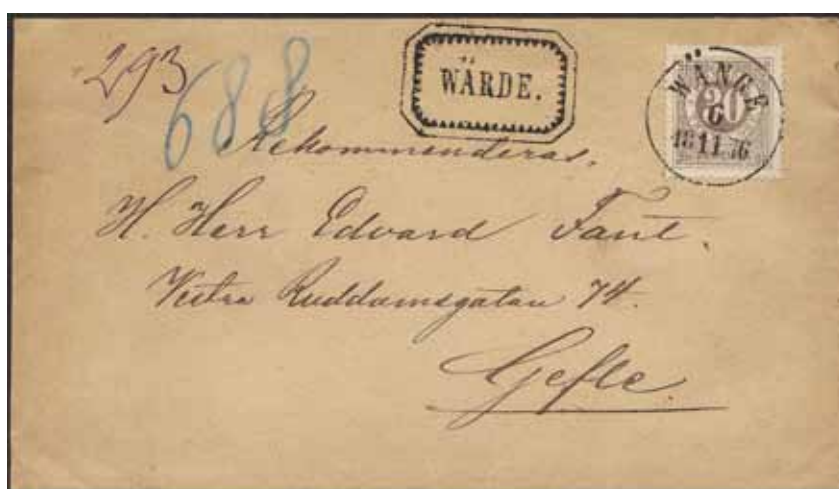 293
688
WÄRDE.
WÄNGE
6
18 11 76
Rekommenderas.
H. Herr Edvard Fant.
Vestra Ruddamsgatan 74.
Gefle.